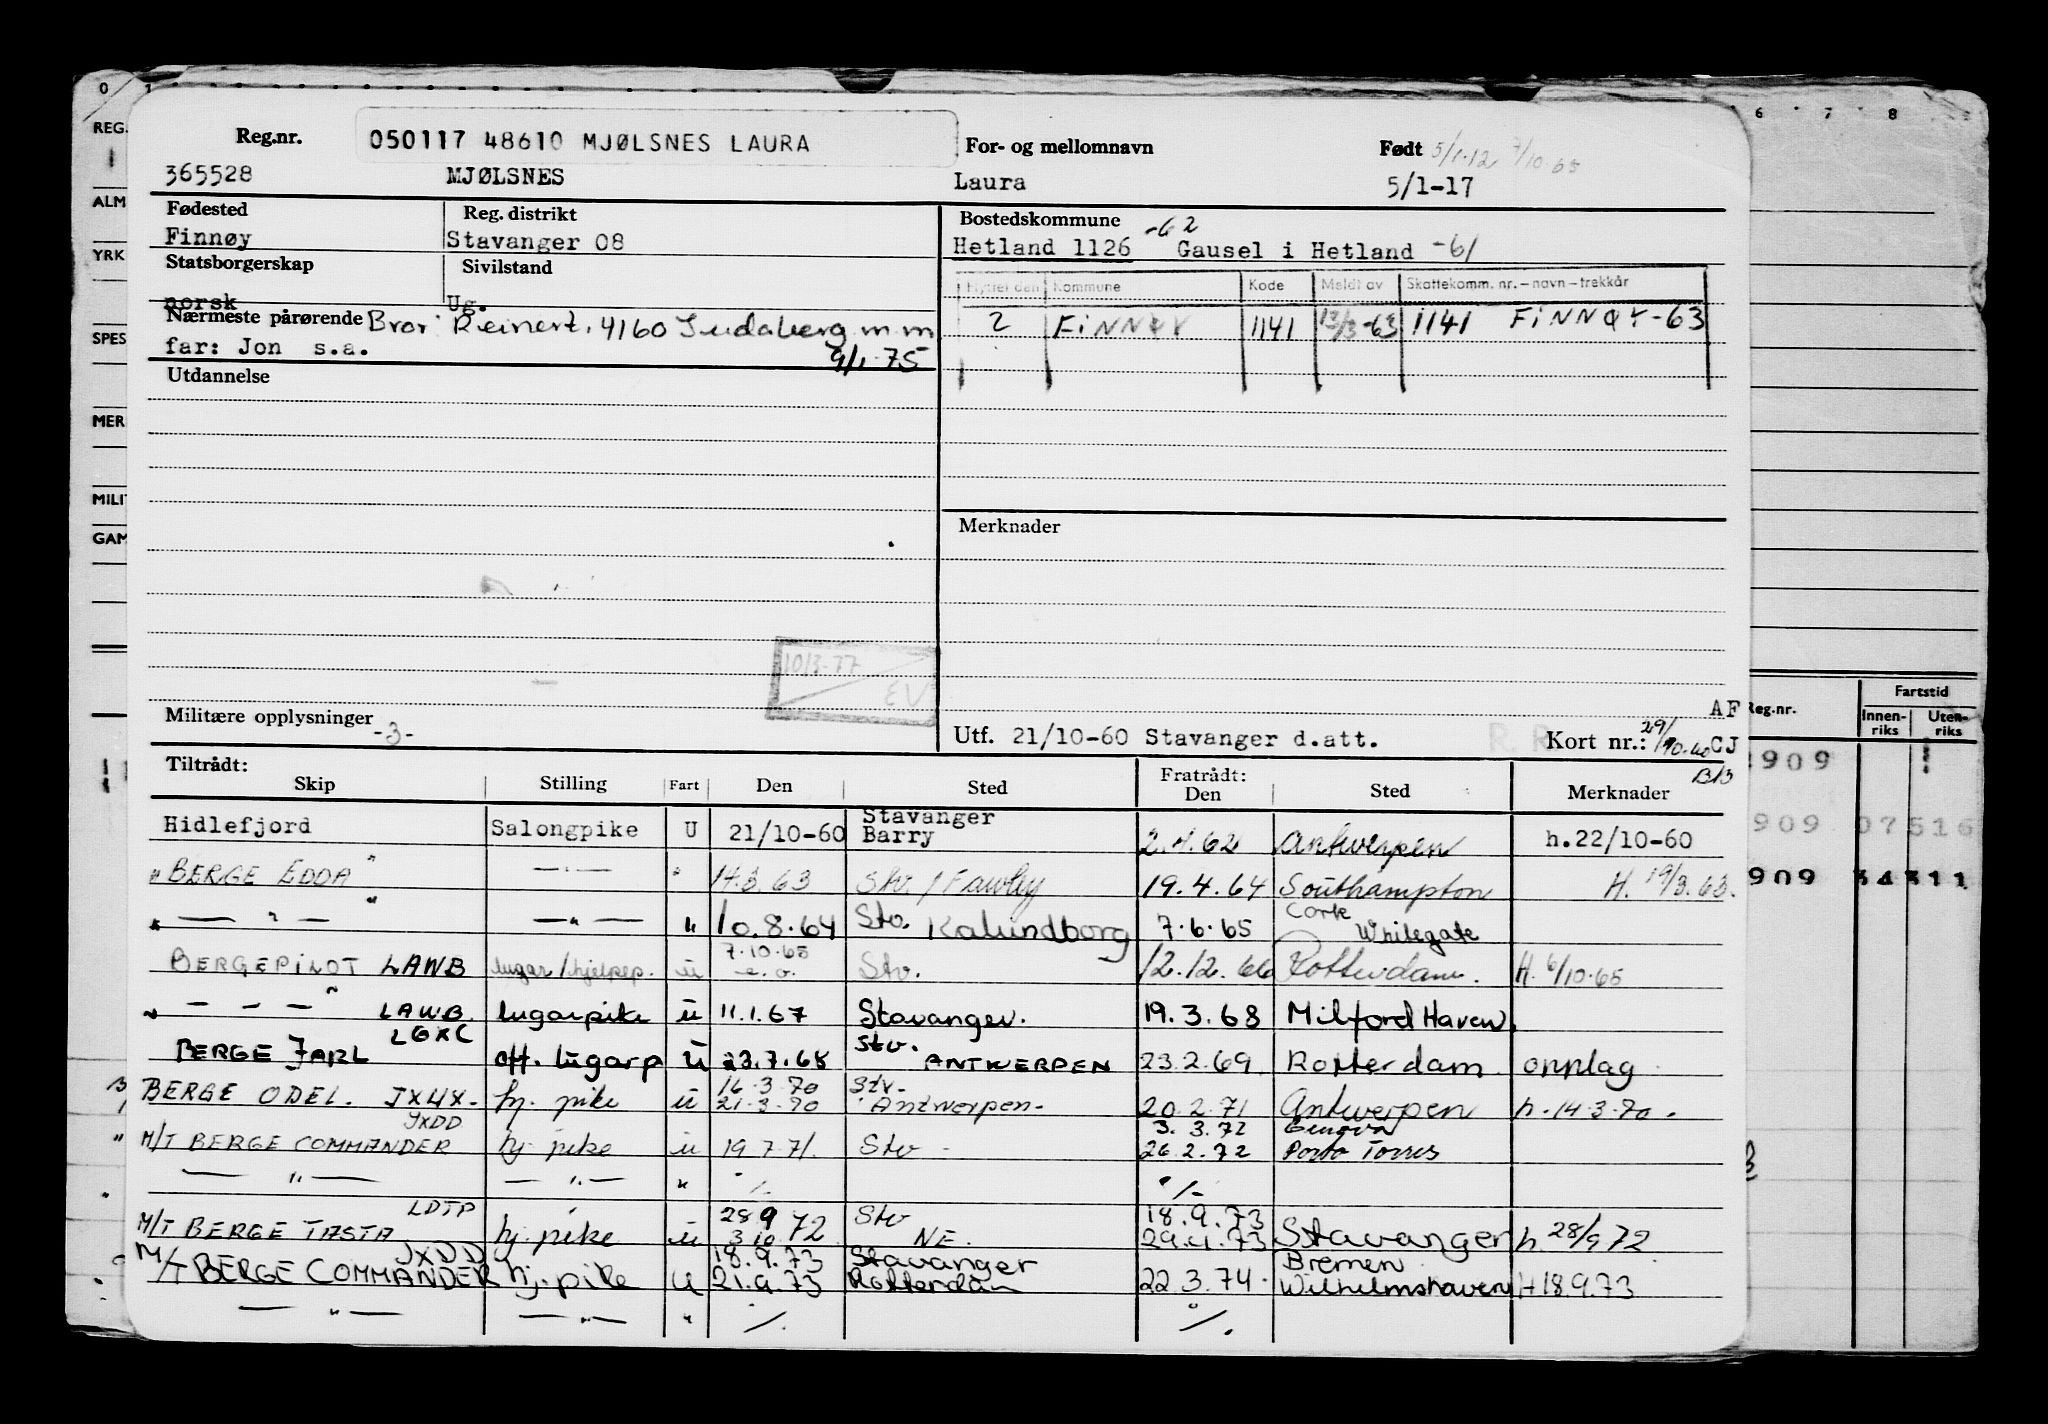 Reg.nr. 050117 48610 MJØLSNES LAURA For- og mellomnavn Født 5/1.12 7/10.65
365528 MJØLSNES Laura 5/1-17
Fødested Reg. distrikt Bostedskommune -62
Finnøy Stavanger 08 Hetland 1126 Gausel i Hetland -61
Statsborgerskap Sivilstand
norsk Ug.
Flyttet den Kommune Kode Meldt av Skattekomm. nr. – navn – trekkår
2 FINNØY 1141 12/3-63 1141 FINNØY-63
Nærmeste pårørende Bror: Reinert, 4160 Judaberg m m
far: Jon s.a. 9/1-75
Utdannelse
Merknader
10/3-77
EV
Militære opplysninger
-3-
AF
Utf. 21/10-60 Stavanger d.att. Kort nr.: 29/10-60 CJ
B/3
Tiltrådt: Fratrådt:
Skip Stilling Fart Den Sted Den Sted Merknader
Hidlefjord Salongpike U 21/10-60 Stavanger Barry 2.4.62 Antwerpen h.22/10-60
" BERGE EDDA " —"— " 14.3.63 Stv. / Fawley 19.4.64 Southampton H. 19/3.63.
" — " — —"— " 10.8.64 Stv. Kalundborg 7.6.65 Cork Whitegate
BERGEPILOT LAWB lugar/hjelpep. u 7.10.65 Stv. 12.12.66 Rotterdam. H. 6/10-65
" — — — " LAWB lugarpike u 11.1.67 Stavanger. 19.3.68 Milford Haven.
BERGE JARL LGXC off. lugarp u 23.7.68 Stv. ANTWERPEN 23.2.69 Rotterdam opplag
BERGE ODEL. JXUX- hj. pike u 16.3.70 21.3.70 Stv- Antwerpen- 20.2.71 Antwerpen h.-14.3.70.
M/T BERGE COMMANDER JXDD hj pike u 19.7.71. Stv - 3.3.72 26.2.72 Genova Porto Torres
— " — — " — " "/- "/-
M/T BERGE TASTA LDTP hj. pike u 28.9 3.10.72 Stv NE. 18.9.73 Stavanger h. 28/9 72
M/T BERGE COMMANDER JXDD hj. pike u 18.9.73 21.9.73 Stavanger Rotterdam 22.3.74 Bremen Wilhelmshaven H 18.9.73
— " — — " — " "/. "/.
REG.
ALM
YRK
SPES
MER
MILIT
GAM
0 1
6 7 8
Reg.nr. Fartstid
Innen-riks Uten-riks
909
909 07516
909 34311